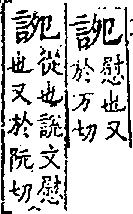 慰也又
於万切
從也說文慰
也又於阮切